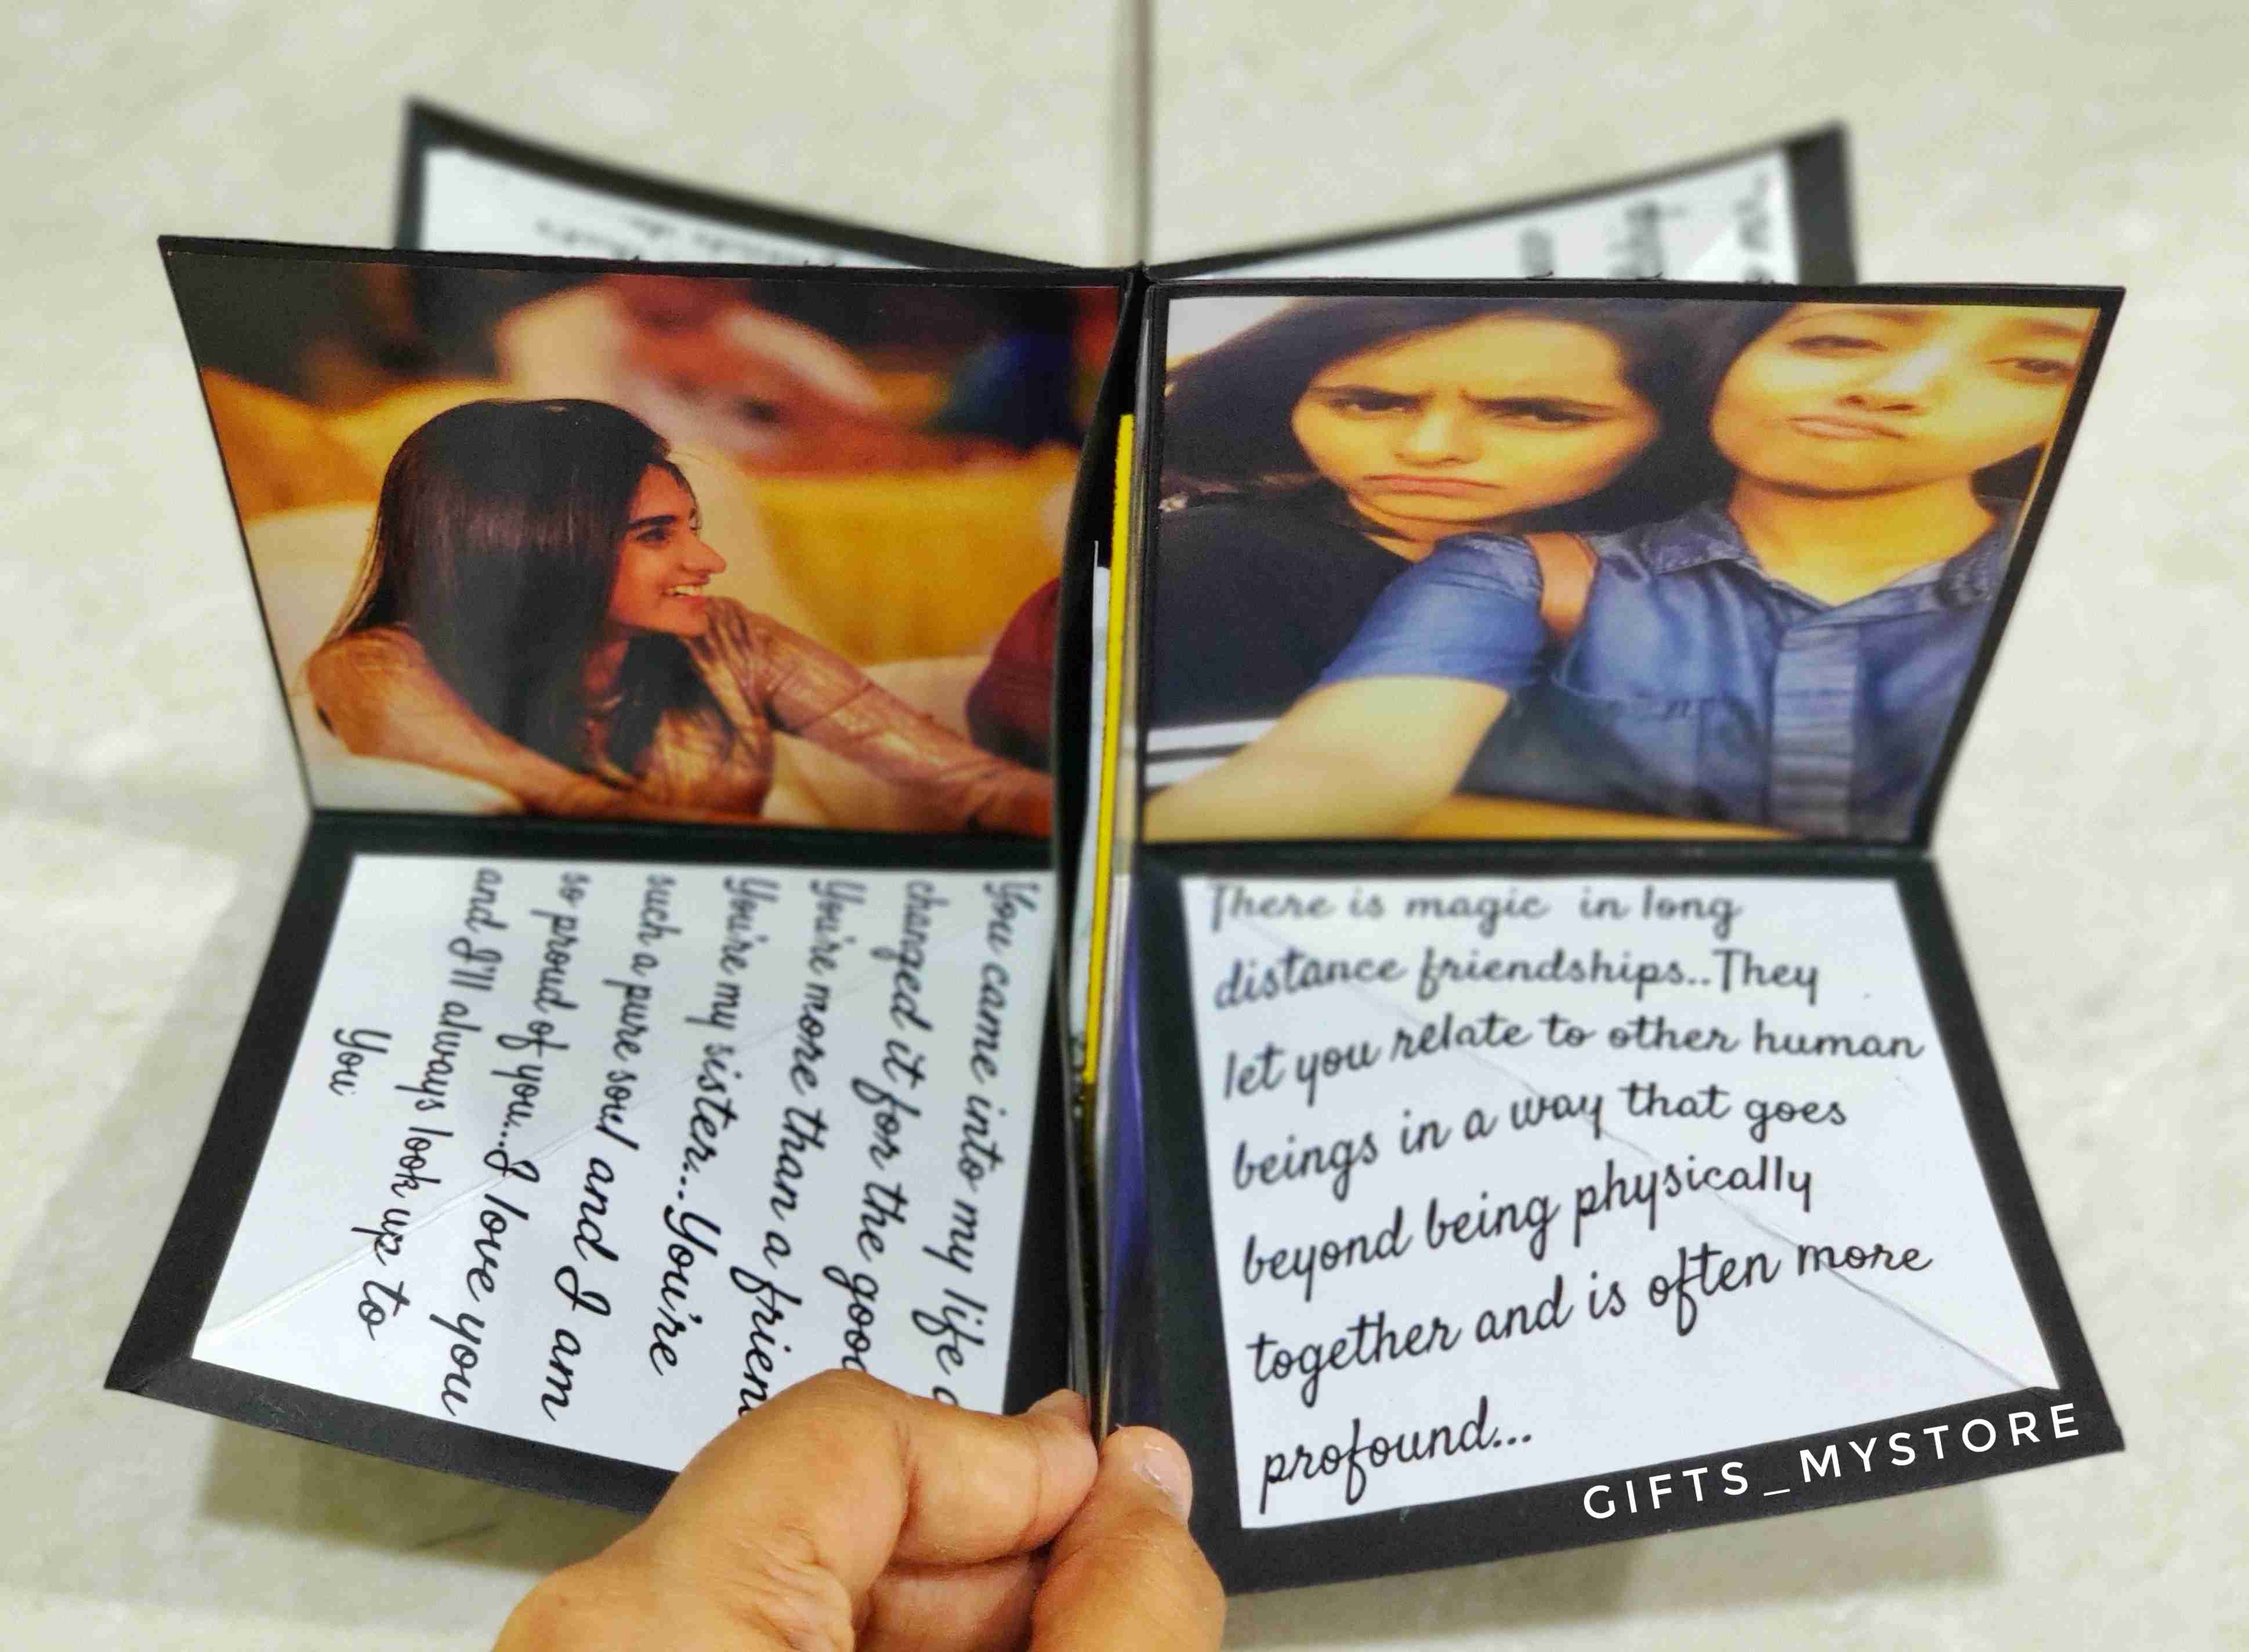 You came into my life
changed it for the good
You're more than a friend
You're my sister...You're
such a pure soul and I am
so proud of you...I love you
and I'll always look up to
you
There is magic in long
distance friendships..They
let you relate to other human
beings in a way that goes
beyond being physically
together and is often more
profound...
GIFTS_MYSTORE